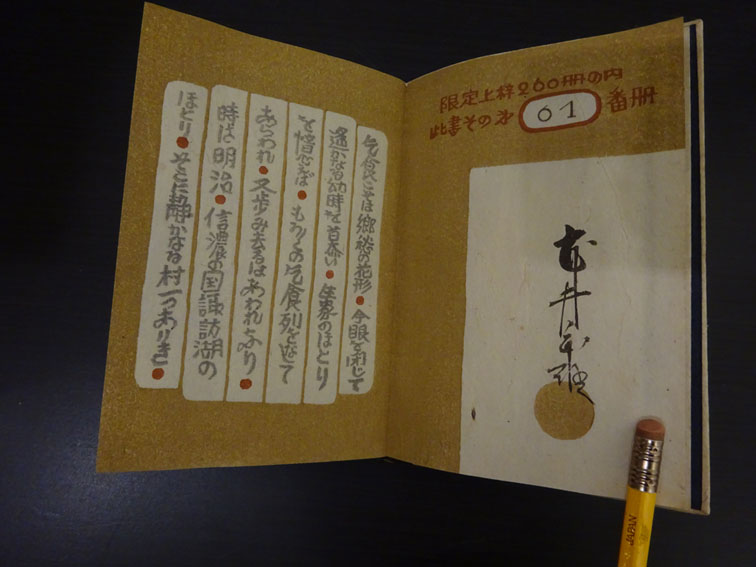 限定上梓260冊の内
此書その第 01 番冊
武井武雄
乞食こそは郷愁の花形●今眼を閉じて
遥かなる幼時を慕い●生家のほとり
を憶へば●もろもろの乞食列を て
あらわれ●又歩み去るはあわれなり●
時は明治●信濃の国諏訪湖の
ほとり●そこに静かなる村一つありき●
JAPAN